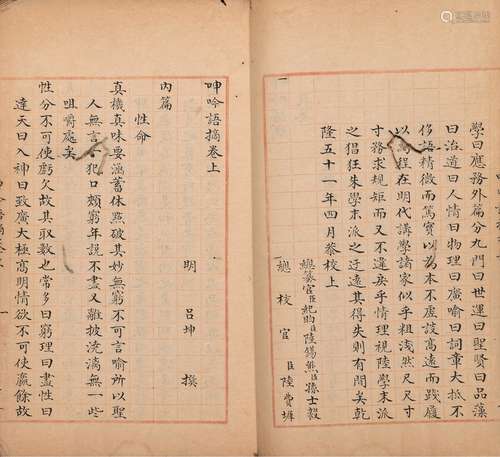 學曰應務外篇分九門曰世運曰品藻
曰治道曰人情曰物理曰廣喻曰詞章大抵不
侈語精微而篤實以為本不虛談高遠而踐履
以為程在明代講學諸家似乎粗淺然尺尺寸
寸務求規矩而又不違乎情理視陸學末派
之猖狂朱學末派之迂遠其得失則有間矣乾
隆五十一年四月恭校上
總纂官臣紀昀臣陸錫熊臣孫士毅
總校官臣陸費墀
呻吟語摘卷上
明 呂坤 撰
內篇
性命
真機真味要涵蓄休㸃破其妙無窮不可言喻所以聖
人無言一犯口頰窮年說不盡又離披澆漓無一些
咀嚼處矣
性分不可使虧欠故其取數也常多曰窮理曰盡性曰
達天曰入神曰致廣大極高明情欲不可使贏餘故